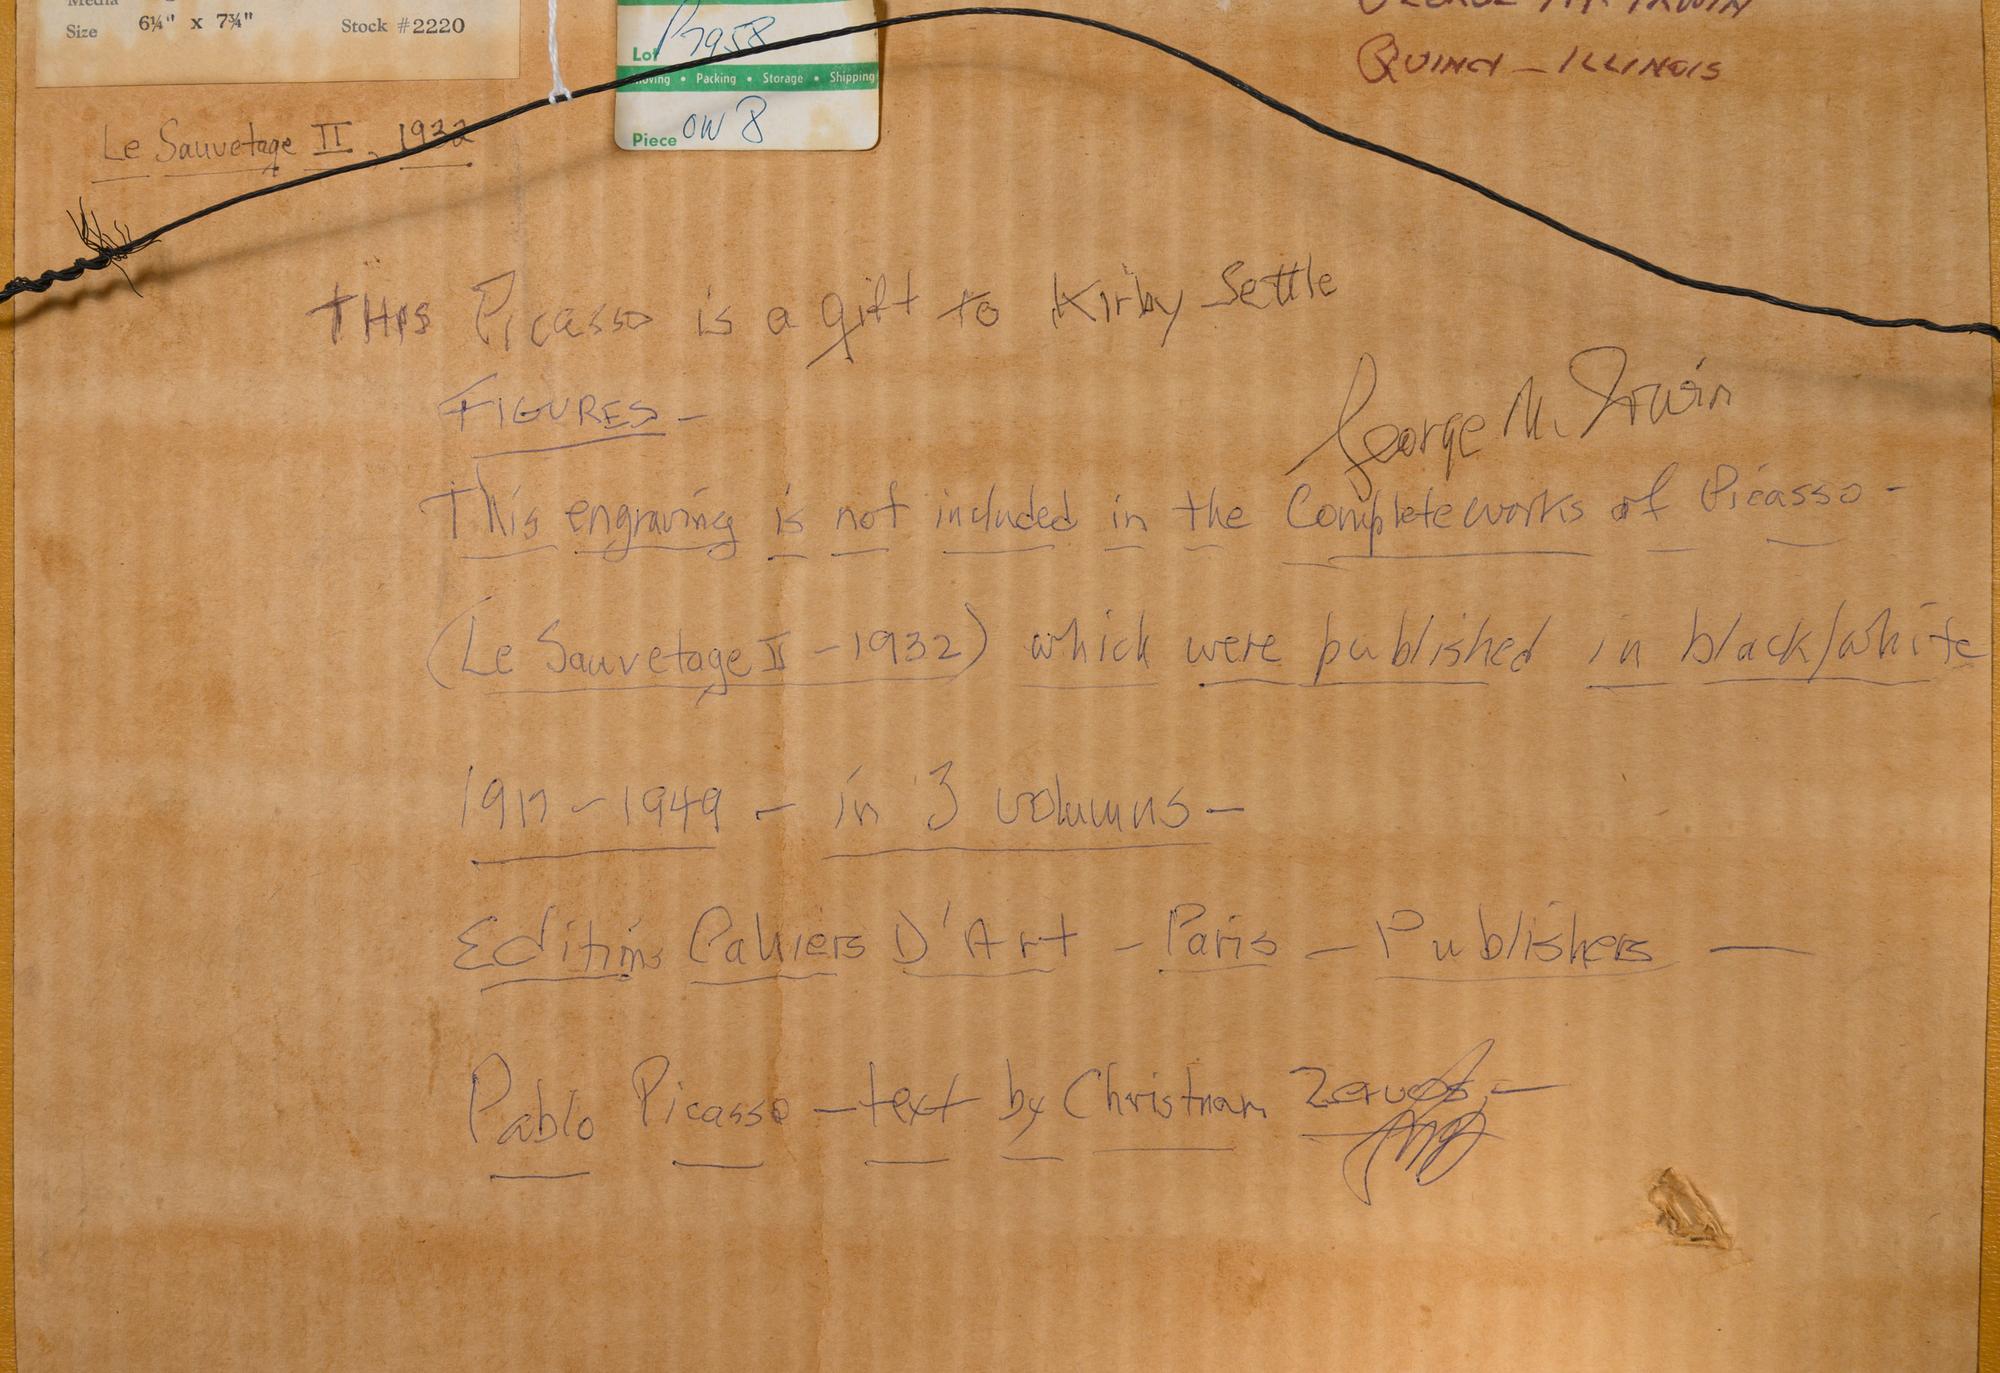 Media
Size 6¼" x 7¾" Stock #2220
Lot P7958
Moving • Packing • Storage • Shipping
Piece OW 8
GEORGE M. IRWIN
QUINCY - ILLINOIS
Le Sauvetage II, 1932
THIS Picasso is a gift to Kirby Settle
George M. Irwin
FIGURES -
This engraving is not included in the Complete works of Picasso -
(Le Sauvetage II - 1932) which were published in black/white
1917 - 1949 - in 3 volumns -
Editins Cahiers D'Art - Paris - Publishers -
Pablo Picasso - text by Christnan Zervos, -